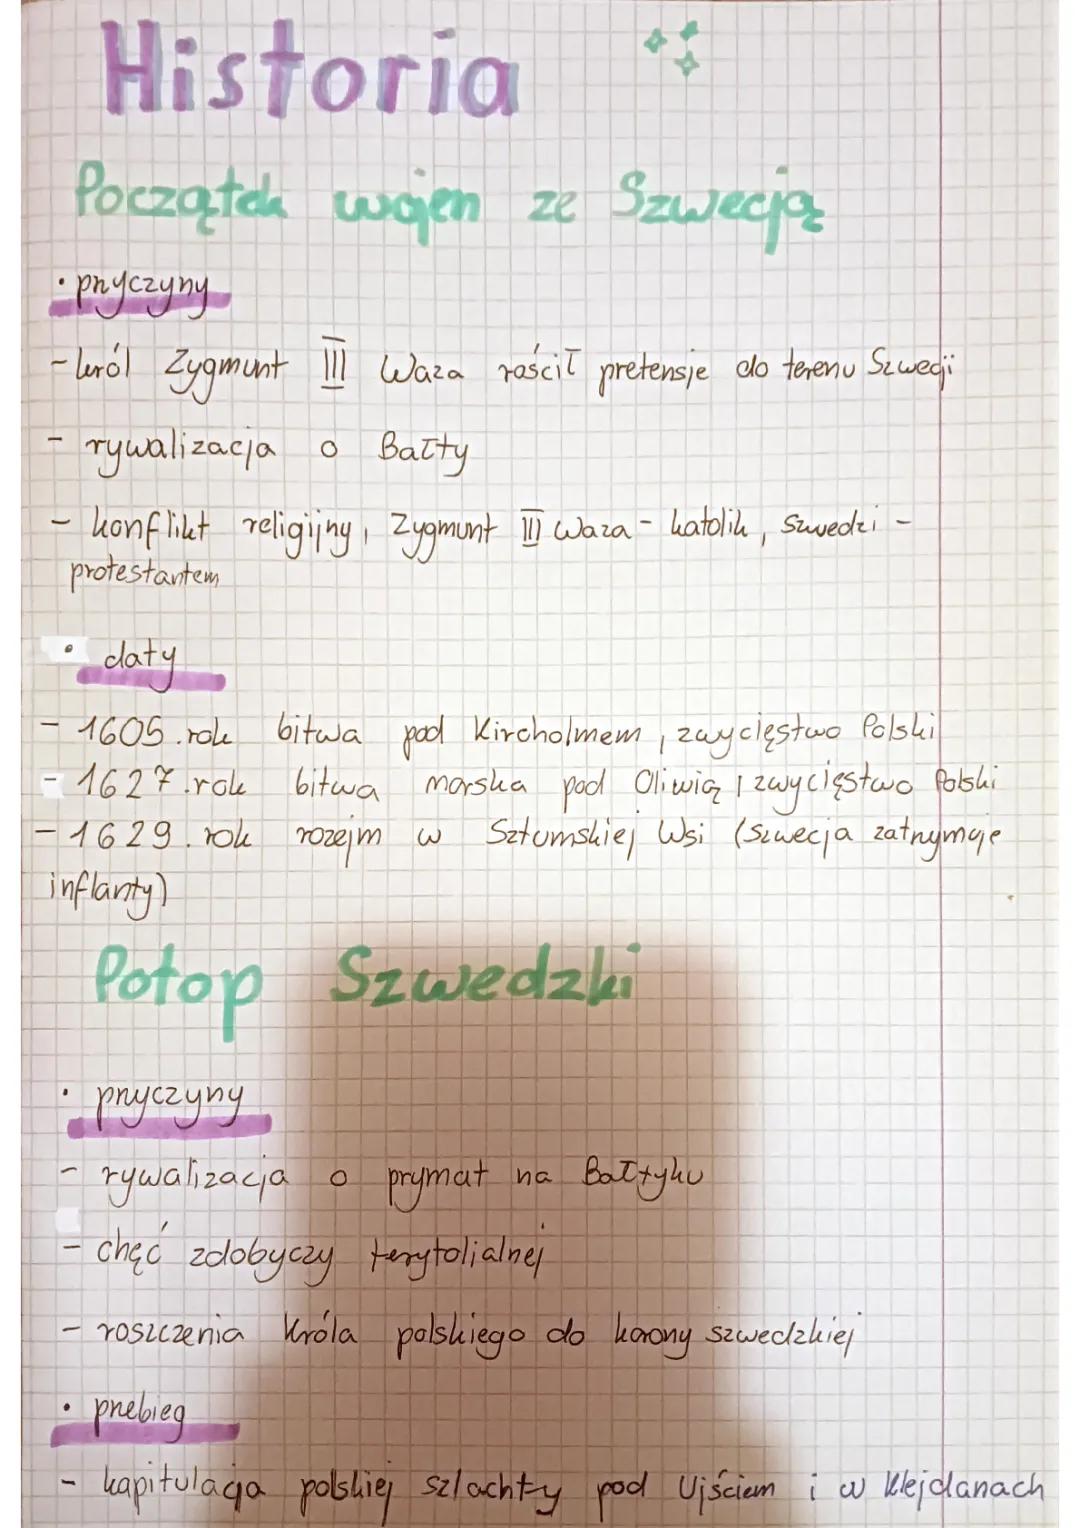 Historia
Początek wojen ze Szwecją
• przyczyny
- król Zygmunt III Waza rościł pretensje do terenu Szwecji
- rywalizacja o Bałty
- konflikt religijny, Zygmunt III Waza - katolik, Szwedzi -
protestantem
• daty
- 1605.rok bitwa pod Kircholmem, zwycięstwo Polski
- 1627.rok bitwa morska pod Oliwią, zwycięstwo Polski
- 1629.rok rozejm w Sztumskiej Wsi (Szwecja zatrzymuje
inflanty)
Potop Szwedzki
• przyczyny
- rywalizacja o prymat na Bałtyku
- chęć zdobyczy terytolialnej
- roszczenia króla polskiego do korony szwedzkiej
• przebieg
- kapitulacja polskiej szlachty pod Ujściem i w Kiejdanach